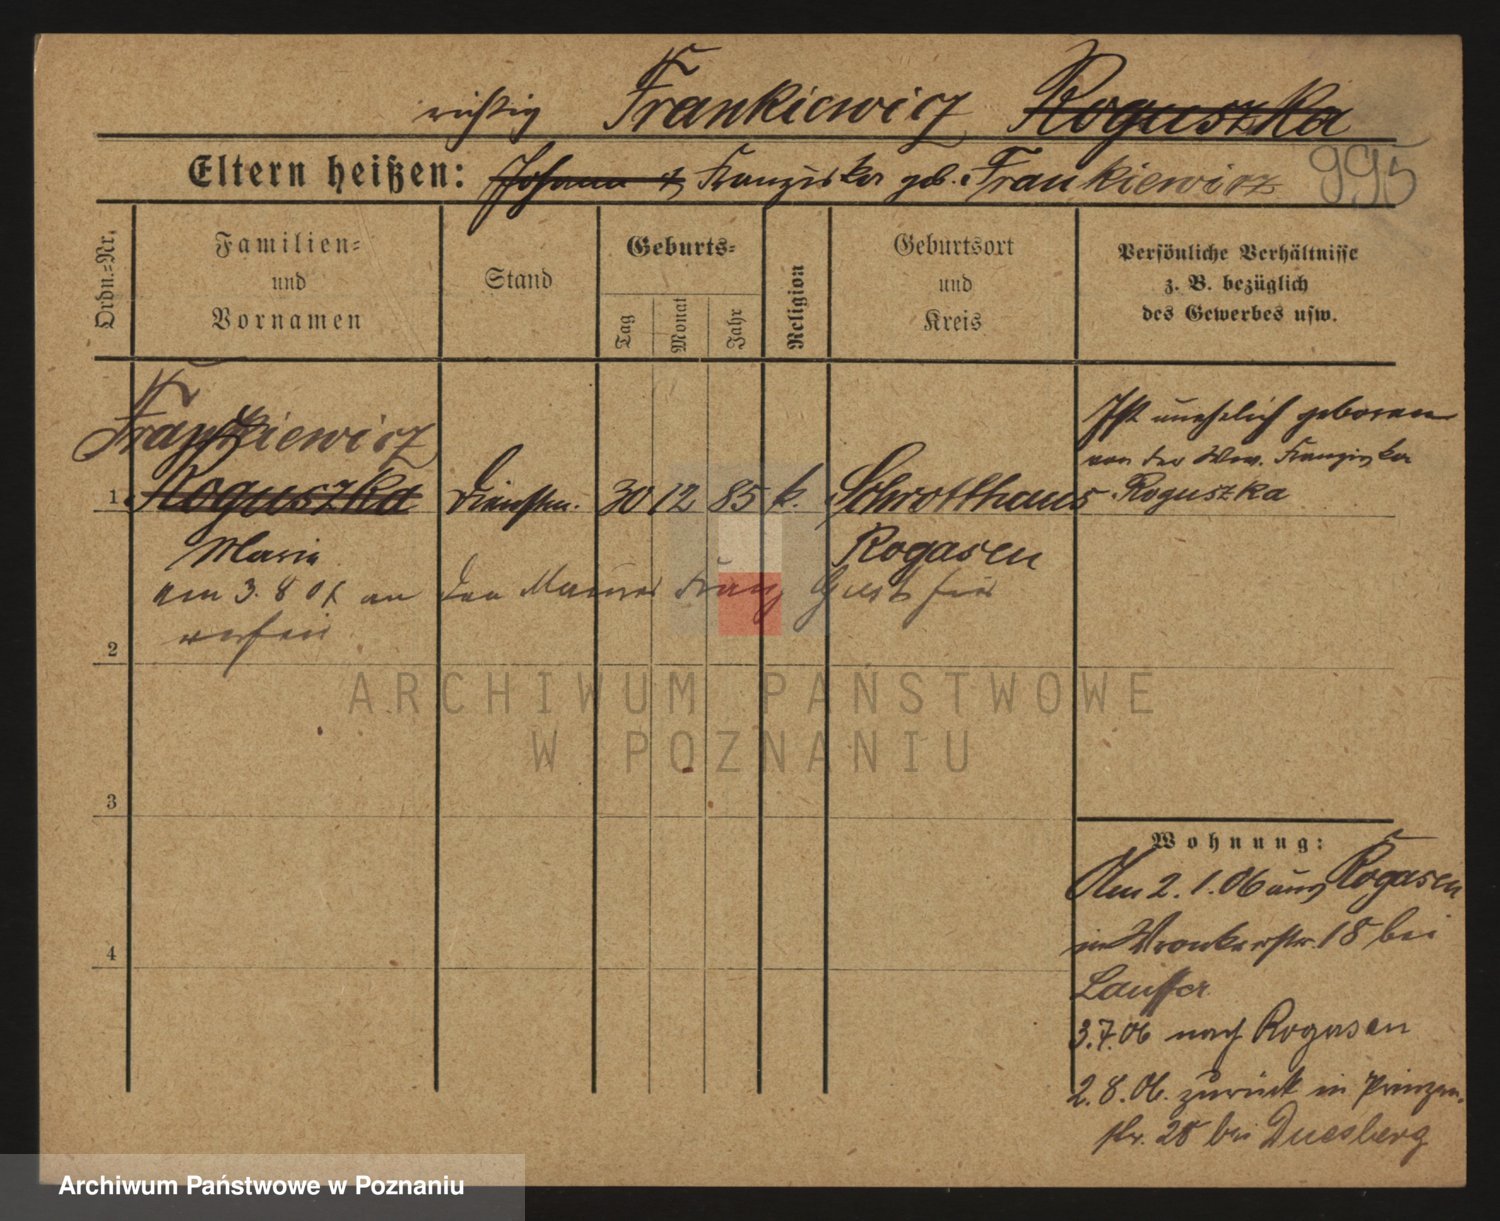 richtig Frankiewicz Roguszka
Eltern heißen: Johann & Franziska geb. Frankiewicz 995
Ordn.=Nr.
Familien=
und
Vornamen
Stand
Geburts=
Tag
Monat
Jahr
Religion
Geburtsort
und
Kreis
Persönliche Verhältnisse
z. B. bezüglich
des Gewerbes usw.
Frankiewicz
1 Roguszka Dienstm. 30 12 85 k. Schrotthaus
Marie Rogasen
Ist unehelich geboren
von der Ww. Franziska
Roguszka
am 3. 8 07 an den Maurer Franz hier
2
3
4
Wohnung:
Am 2. 1. 06 aus Rogasen
in Wronkerstr. 18 bei
Lauffer
3.7.06 nach Rogasen
2.8.06. zurück in Prinzen-
str. 28 bei Duesberg
ARCHIWUM PAŃSTWOWE
W POZNANIU
Archiwum Państwowe w Poznaniu